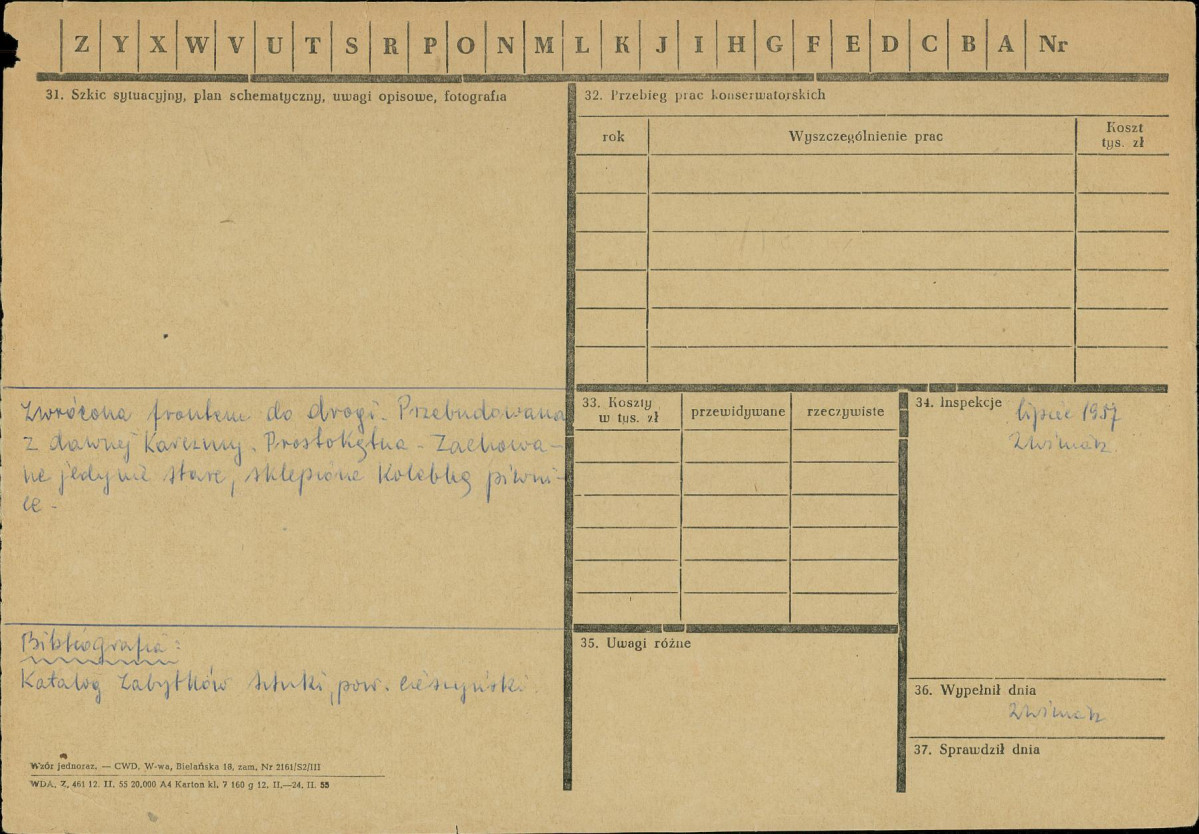 Z Y X W V U T S R P O N M L K J I H G F E D C B A Nr
31. Szkic sytuacyjny, plan schematyczny, uwagi opisowe, fotografia
Zwrócona frontem do drogi. Przebudowana
z dawnej Karczmy. Prostokątna - Zachowa-
ne jedynie stare, sklepione Kolebką piwni-
ce -
Bibliografia:
Katalog Zabytków Sztuki, pow. Cieszyński.
Wzór jednoraz. — CWD, W-wa, Bielańska 18, zam. Nr 2161/S2/III
WDA. Z. 461 12. II. 55 20.000 A4 Karton kl. 7 160 g 12. II.—24. II. 55
32. Przebieg prac konserwatorskich
rok
Wyszczególnienie prac
Koszt
tys. zł
33. Koszty
w tys. zł
przewidywane
rzeczywiste
34. Inspekcje
lipiec 1957
35. Uwagi różne
36. Wypełnił dnia
37. Sprawdził dnia